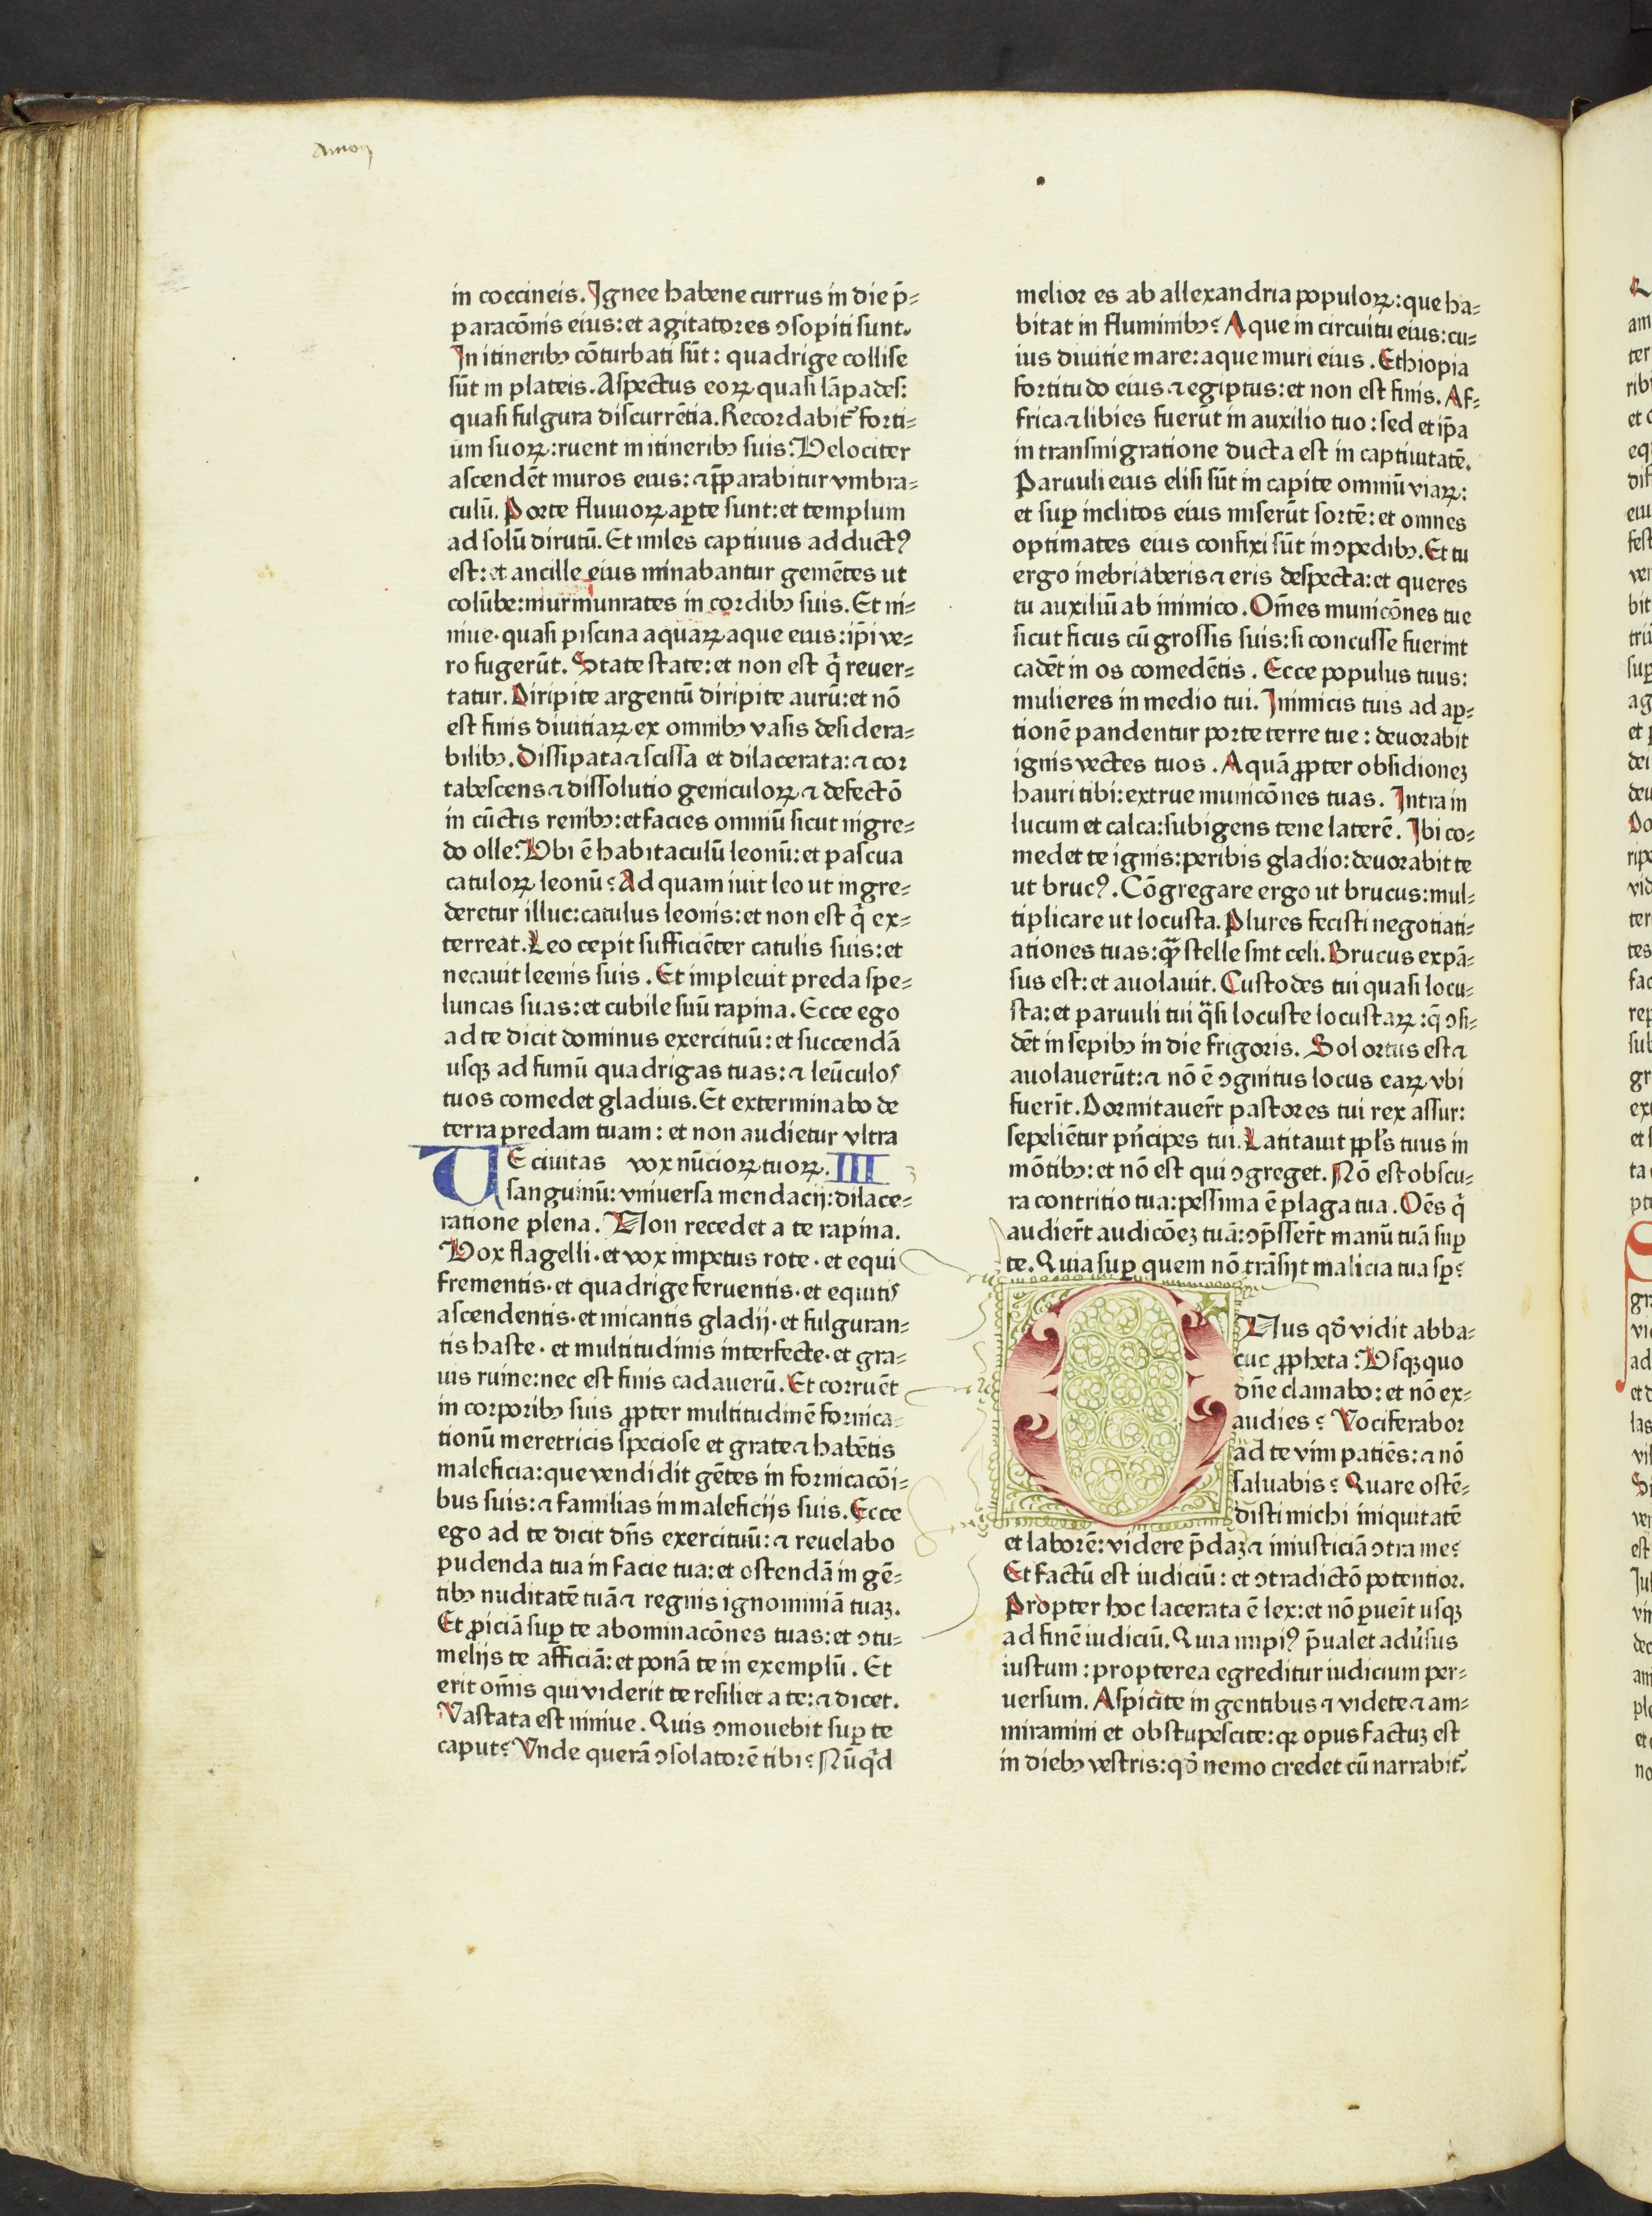 Amon
in coccineis. Ignee habene currus in die p̄-
paracōnis eius: et agitatores ↄsopiti sunt.
In itineribꝫ cōturbati sūt: quadrige collise
sūt in plateis. Aspectus eoꝝ quasi lāpades:
quasi fulgura discurrētia. Recordabit᷑ forti-
um suoꝝ: ruent in itineribꝫ suis. Velociter
ascendēt muros eius: ⁊ p̄parabitur vmbra-
culū. Porte fluuioꝝ aꝑte sunt: et templum
ad solū dirutū. Et miles captiuus adductꝰ
est: et ancille eius minabantur gemētes ut
colūbe: murmunrates in cordibꝫ suis. Et ni-
niue· quasi piscina aquaꝝ aque eius: ip̄i ve-
ro fugerūt. State state: et non est q̄ reuer-
tatur. Diripite argentū diripite aurū: et nō
est finis diuitiaꝝ ex omnibꝫ vasis desidera-
bilibꝫ. Dissipata ⁊ scissa et dilacerata: ⁊ cor
tabescens ⁊ dissolutio geniculoꝝ ⁊ defectō
in cūctis renibꝫ: et facies omniū sicut nigre-
do olle. Vbi ē habitaculū leonū: et pascua
catuloꝝ leonū? Ad quam iuit leo ut ingre-
deretur illuc: catulus leonis: et non est q̄ ex-
terreat. Leo cepit sufficiēter catulis suis: et
necauit leenis suis. Et impleuit preda spe-
luncas suas: et cubile suū rapina. Ecce ego
ad te dicit dominus exercituū: et succendā
usqꝫ ad fumū quadrigas tuas: ⁊ leūculos
tuos comedet gladius. Et exterminabo de
terra predam tuam: et non audietur vltra
VE ciuitas vox nūcioꝝ tuoꝝ. III
sanguinū: vniuersa mendacij: dilace-
ratione plena. Non recedet a te rapina.
Vox flagelli· et vox impetus rote· et equi
frementis· et quadrige feruentis· et equitis
ascendentis· et micantis gladij· et fulguran-
tis haste· et multitudinis interfecte· et gra-
uis ruine: nec est finis cadauerū. Et corruēt
in corporibꝫ suis ꝓpter multitudinē fornica-
tionū meretricis speciose et grate ⁊ habētis
maleficia: que vendidit gētes in fornicacōi-
bus suis: ⁊ familias in maleficijs suis. Ecce
ego ad te dicit dn̄s exercituū: ⁊ reuelabo
pudenda tua in facie tua: et ostendā in gē-
tibꝫ nuditatē tuā ⁊ regnis ignominiā tuaꝫ.
Et ꝓiciā suꝑ te abominacōnes tuas: et ↄtu-
melijs te afficiā: et ponā te in exemplū. Et
erit om̄is qui viderit te resiliet a te: ⁊ dicet.
Vastata est niniue. Quis ↄmouebit suꝑ te
caput? Vnde querā ↄsolatorē tibi? Nūqͥd
melior es ab allexandria populoꝝ: que ha-
bitat in fluminibꝫ? Aque in circuitu eius: cu-
ius diuitie mare: aque muri eius. Ethiopia
fortitudo eius ⁊ egiptus: et non est finis. Af-
frica ⁊ libies fuerūt in auxilio tuo: sed et ip̄a
in transmigratione ducta est in captiuitatē.
Paruuli eius elisi sūt in capite omniū viaꝝ:
et suꝑ inclitos eius miserūt sortē: et omnes
optimates eius confixi sūt in ↄpedibꝫ. Et tu
ergo inebriaberis ⁊ eris despecta: et queres
tu auxiliū ab inimico. Om̄es municōnes tue
sicut ficus cū grossis suis: si concusse fuerint
cadēt in os comedētis. Ecce populus tuus:
mulieres in medio tui. Inimicis tuis ad aꝑ-
tionē pandentur porte terre tue: deuorabit
ignis vectes tuos. Aquā ꝓpter obsidioneꝫ
hauri tibi: extrue municōnes tuas. Intra in
lucum et calca: subigens tene laterē. Ibi co-
medet te ignis: peribis gladio: deuorabit te
ut brucꝰ. Cōgregare ergo ut brucus: mul-
tiplicare ut locusta. Plures fecisti negotiati-
ationes tuas: qͣꝫ stelle sint celi. Brucus expā-
sus est: et auolauit. Custodes tui quasi locu-
sta: et paruuli tui qͣsi locuste locustaꝝ: q̄ ↄsi-
dēt in sepibꝫ in die frigoris. Sol ortus est ⁊
auolauerūt: ⁊ nō ē ↄgnitus locus eaꝝ vbi
fuerit. Dormitauer̄t pastores tui rex assur:
sepeliētur pͥncipes tui. Latitauit ꝓpl̄s tuus in
mōtibꝫ: et nō est qui ↄgreget. Nō est obscu-
ra contritio tua: pessima ē plaga tua. Oēs q̄
audier̄t audicōeꝫ tuā: ↄp̄sser̄t manū tuā suꝑ
te. Quia suꝑ quem nō trāsijt malicia tua sꝑ?
ONus qd̄ vidit abba-
cuc ꝓpheta. Vsqꝫquo
dn̄e clamabo: et nō ex-
audies? Vociferabor
ad te vim patiēs: ⁊ nō
saluabis? Quare ostē-
disti michi iniquitatē
et laborē: videre p̄daꝫ ⁊ iniusticiā ↄtra me?
Et factū est iudiciū: et ↄtradictō potentior.
Propter hoc lacerata ē lex: et nō ꝑueit usqꝫ
ad finē iudiciū. Quia impiꝰ p̄ualet adūsus
iustum: propterea egreditur iudicium per-
uersum. Aspicite in gentibus ⁊ videte ⁊ am-
miramini et obstupescite: qꝛ opus factuꝫ est
in diebꝫ vestris: qd̄ nemo credet cū narrabit᷑.